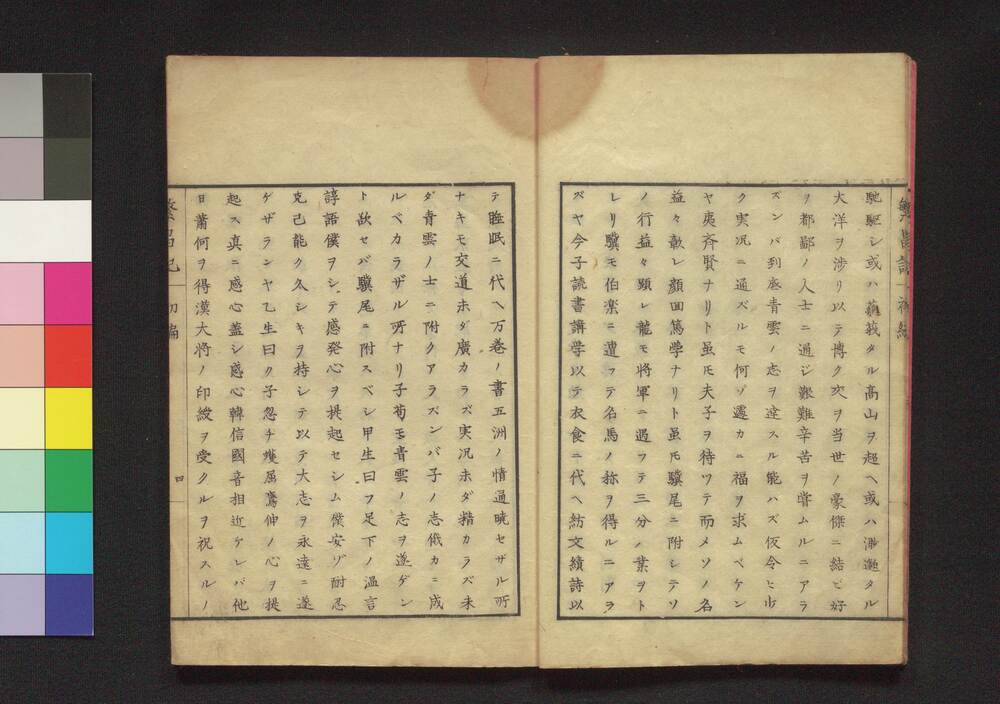 馳駆シ或ハ巍峩タル高山ヲ超ヘ或ハ渺瀰タル
大洋ヲ渉リ以テ博ク交ヲ当世ノ豪傑ニ結ビ好
ヲ都鄙ノ人士ニ通ジ艱難辛苦ヲ嘗ムルニアラ
ズンバ到底青雲ノ志ヲ達スル能ハズ仮令ヒ少
ク実况ニ通ズルモ何ゾ遽カニ福ヲ求ムベケン
ヤ夷斉賢ナリト虽𪜈夫子ヲ待ツテ而メソノ名
益々彰レ顔回篤学ナリト虽𪜈驥尾ニ附シテソ
ノ行益々顕レ龍モ将軍ニ遇フテ三分ノ業ヲト
レリ驥モ伯楽ニ遭フテ名馬ノ称ヲ得ルニアラ
ズヤ今子読書講学以テ衣食ニ代ヘ紡文績詩以
テ睡眠ニ代ヘ万巻ノ書五洲ノ情通暁セザル所
ナキモ交道未ダ廣カラズ実况未ダ精カラズ未
ダ青雲ノ士ニ附クアラズンバ子ノ志俄カニ成
ルベカラザル所ナリ子苟モ青雲ノ志ヲ遂ゲン
ト欲セバ驥尾ニ附スベシ甲生曰フ足下ノ温言
諄語僕ヲシテ感発心ヲ提起セシム僕安ゾ耐忍
克己能ク久シキヲ持シテ以テ大志ヲ永遠ニ遂
ゲザランヤ乙生曰ク子忽チ蠖屈鷹伸ノ心ヲ提
起ス真ニ感心盖シ感心韓信國音相近ケレバ他
日蕭何ヲ得漢大将ノ印綬ヲ受クルヲ祝スルノ
繁昌記
初編
四